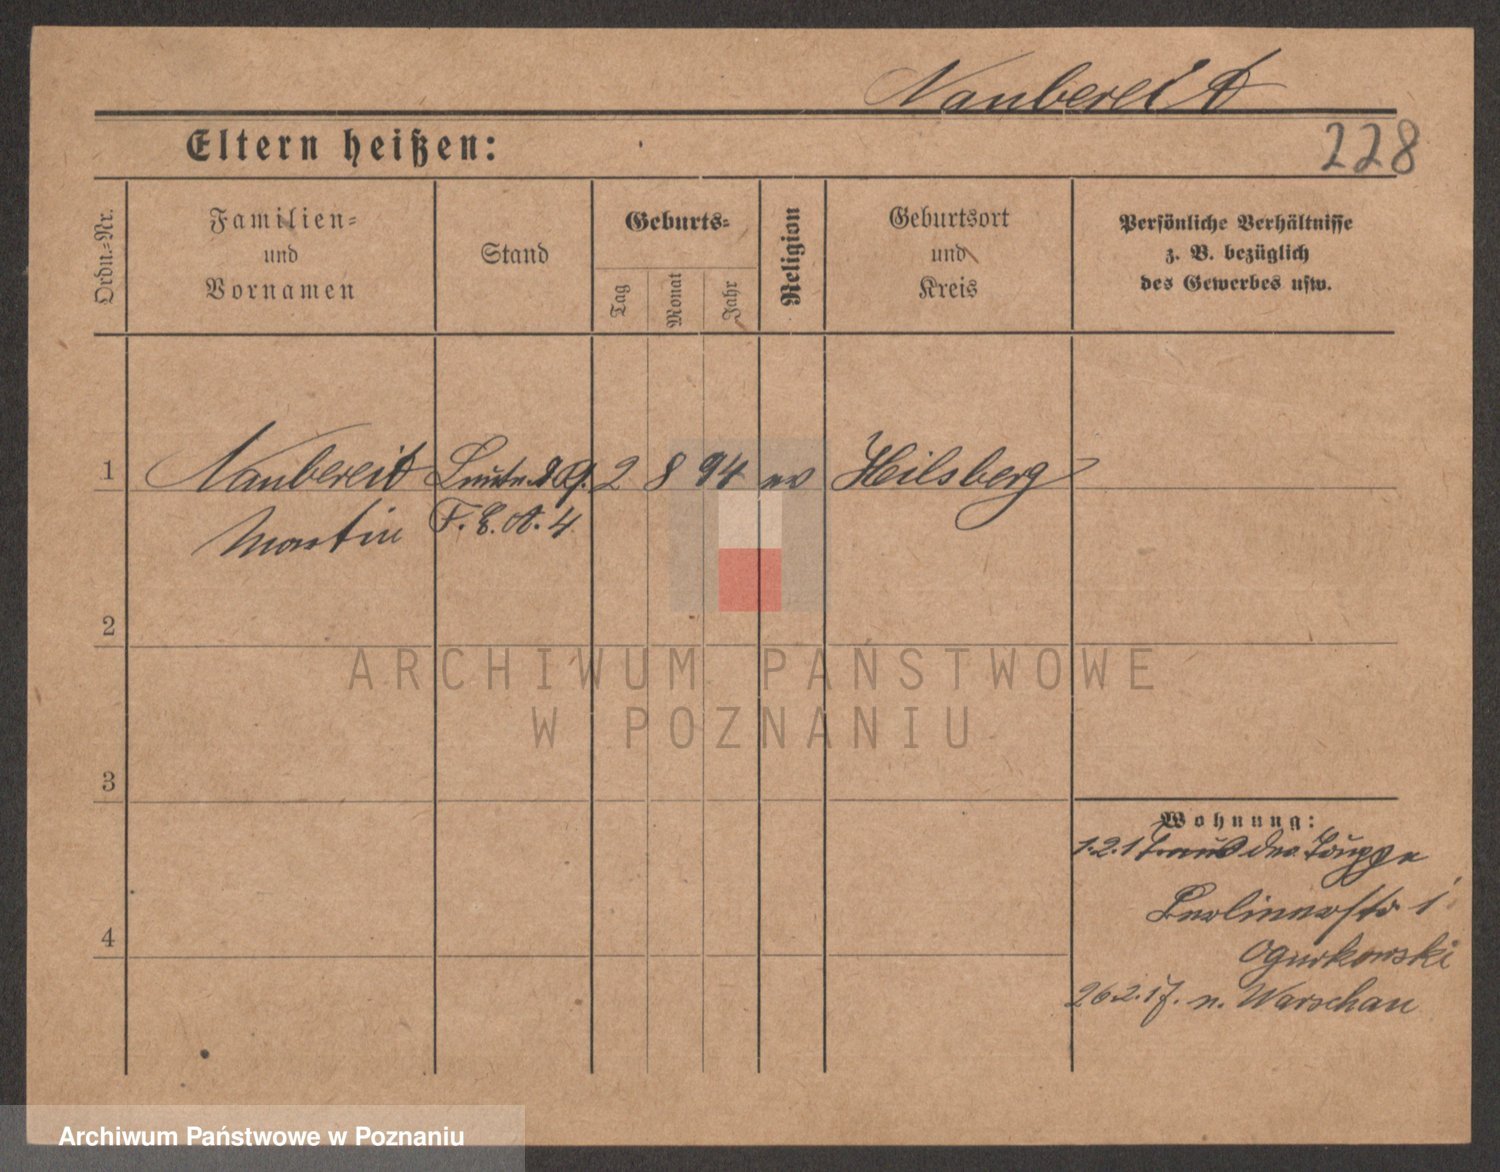 Naubereit
Eltern heißen:
228
Ordn.-Nr.
Familien-
und
Vornamen
Stand
Geburts-
Tag
Monat
Jahr
Religion
Geburtsort
und
Kreis
Persönliche Verhältnisse
z. B. bezüglich
des Gewerbes usw.
1
Naubereit
Leutn. d. R. 2 8 94 ev Heilsberg
Martin
F. E. A. 4
2
3
4
Wohnung:
aus der Truppe
Berlinerstr 1
Ogurkowski
26.2.17. n. Warschau
ARCHIWUM PAŃSTWOWE
W POZNANIU
Archiwum Państwowe w Poznaniu